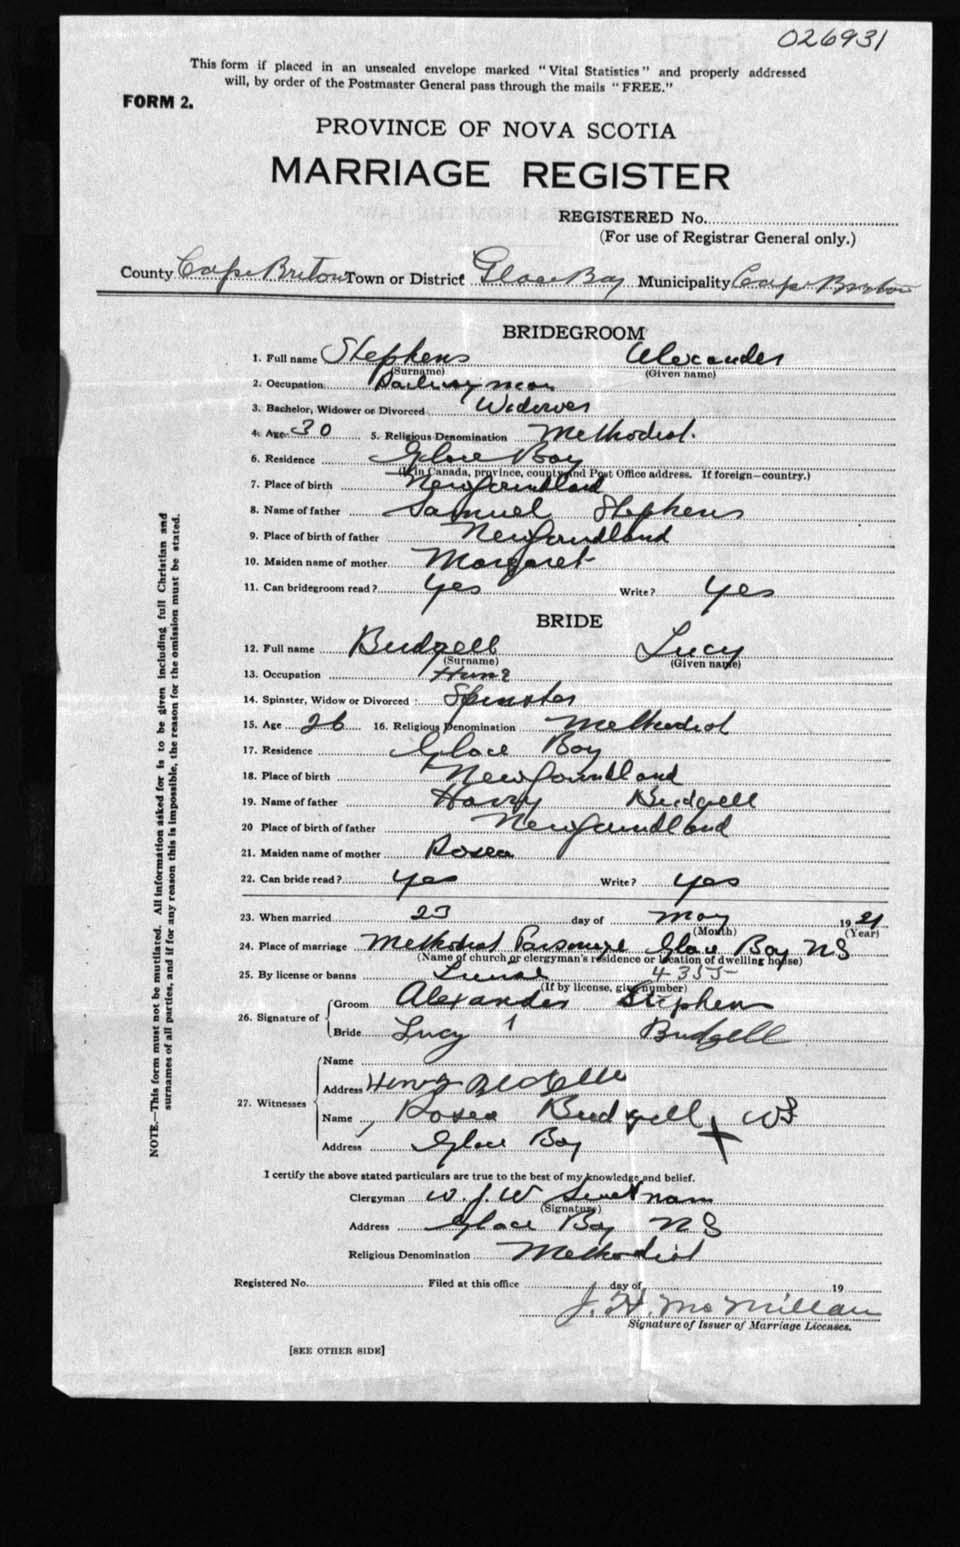 026931
This form if placed in an unsealed envelope marked "Vital Statistics" and properly addressed
will, by order of the Postmaster General pass through the mails "FREE."
FORM 2.
PROVINCE OF NOVA SCOTIA
MARRIAGE REGISTER
REGISTERED No.
(For use of Registrar General only.)
County Cape Breton Town or District Glace Bay Municipality Cape Breton
BRIDEGROOM
1. Full name Stephens Alexander
(Surname) (Given name)
2. Occupation Railway man
3. Bachelor, Widower or Divorced Widower
4. Age 30 5. Religious Denomination Methodist.
6. Residence Glace Bay
(If in Canada, province, county and Post Office address. If foreign—country.)
7. Place of birth Newfoundland
8. Name of father Samuel Stephens
9. Place of birth of father Newfoundland
10. Maiden name of mother Margaret
11. Can bridegroom read? yes Write? yes
BRIDE
12. Full name Budgell Lucy
(Surname) (Given name)
13. Occupation
14. Spinster, Widow or Divorced : Spinster
15. Age 26 16. Religious Denomination Methodist
17. Residence Glace Bay
18. Place of birth Newfoundland
19. Name of father Harry Budgell
20 Place of birth of father Newfoundland
21. Maiden name of mother Rosea
22. Can bride read? yes Write? yes
23. When married 23 day of May 1921
(Month) (Year)
24. Place of marriage Methodist Parsonage Glace Bay NS
(Name of church or clergyman's residence or location of dwelling house)
25. By license or banns License 4355
(If by license, give number)
26. Signature of Groom Alexander Stephens
Bride Lucy Budgell
27. Witnesses
Name
Address Henry
Name Rosea Budgell X
Address Glace Bay
I certify the above stated particulars are true to the best of my knowledge and belief.
Clergyman W. J. W. Swetnam
(Signature)
Address Glace Bay NS
Religious Denomination Methodist
Registered No. Filed at this office day of 19
J. H. McMillan
Signature of Issuer of Marriage Licenses.
[SEE OTHER SIDE]
NOTE.—This form must not be mutilated. All information asked for is to be given including full Christian and
surnames of all parties, and if for any reason this is impossible, the reason for the omission must be stated.